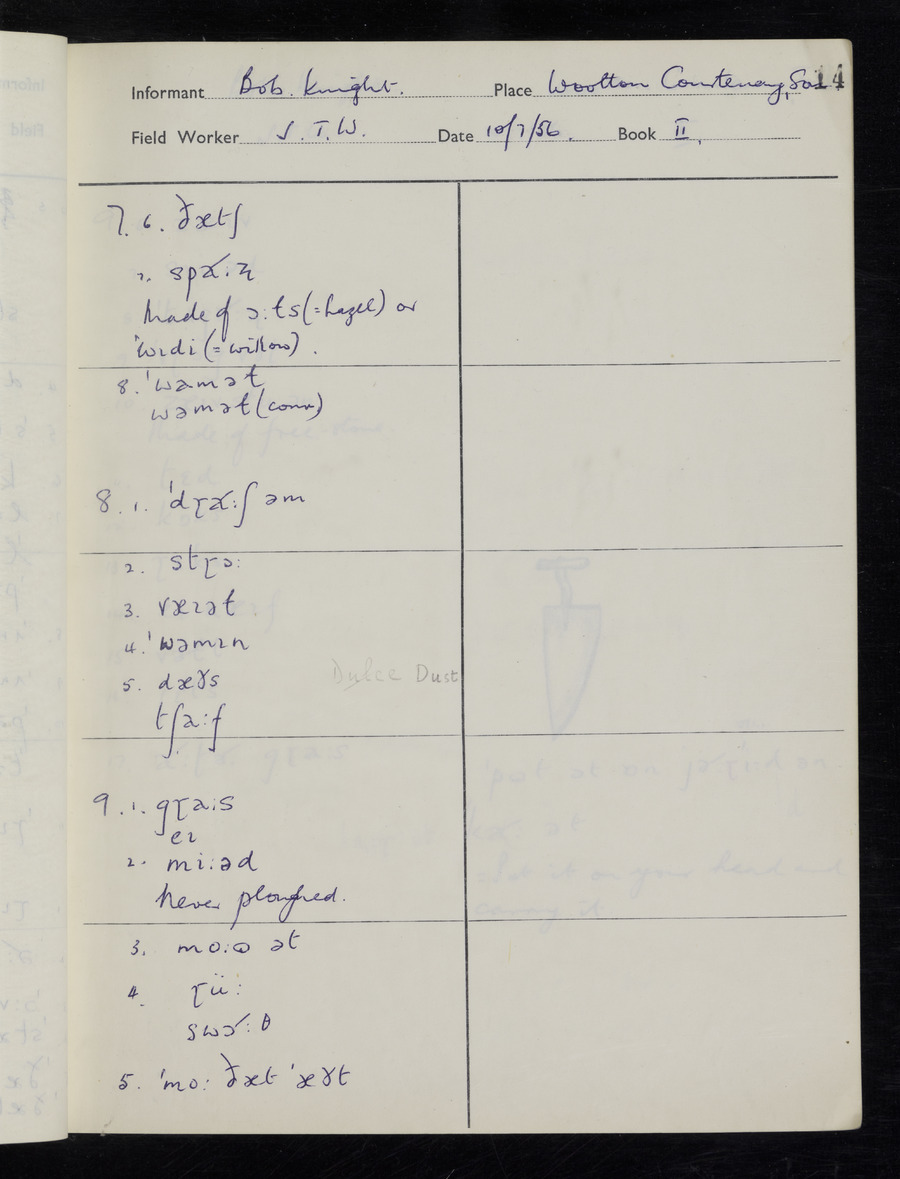 14
Informant Bob. Knight. Place Wootton Courtenay, Som
Field Worker S. T. W. Date 10/7/56. Book II,
7. 6. ðætʃ
7. spɑ˞:z̢
Made of ɔ:ts (= hazel) or
'wɪdi (= willow).
8. 'wəmət
wəmət (conv)
8. 1. 'dɽɑ˞:ʃ əm
2. stɽɔ:
3. væɪət
4. 'wəmɪn
5. dæɤs
tʃa:f
Dulce Dust
9. 1. gɽa:s
eɪ
2. mi:əd
Never ploughed.
3. mo:ɷ ət
4. ɽü:
swɔ˞:θ
5. 'mo: ðæt 'æɤt